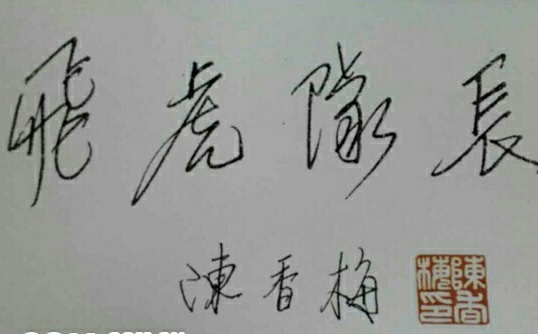 飛虎隊長
陳香梅
陳香梅印